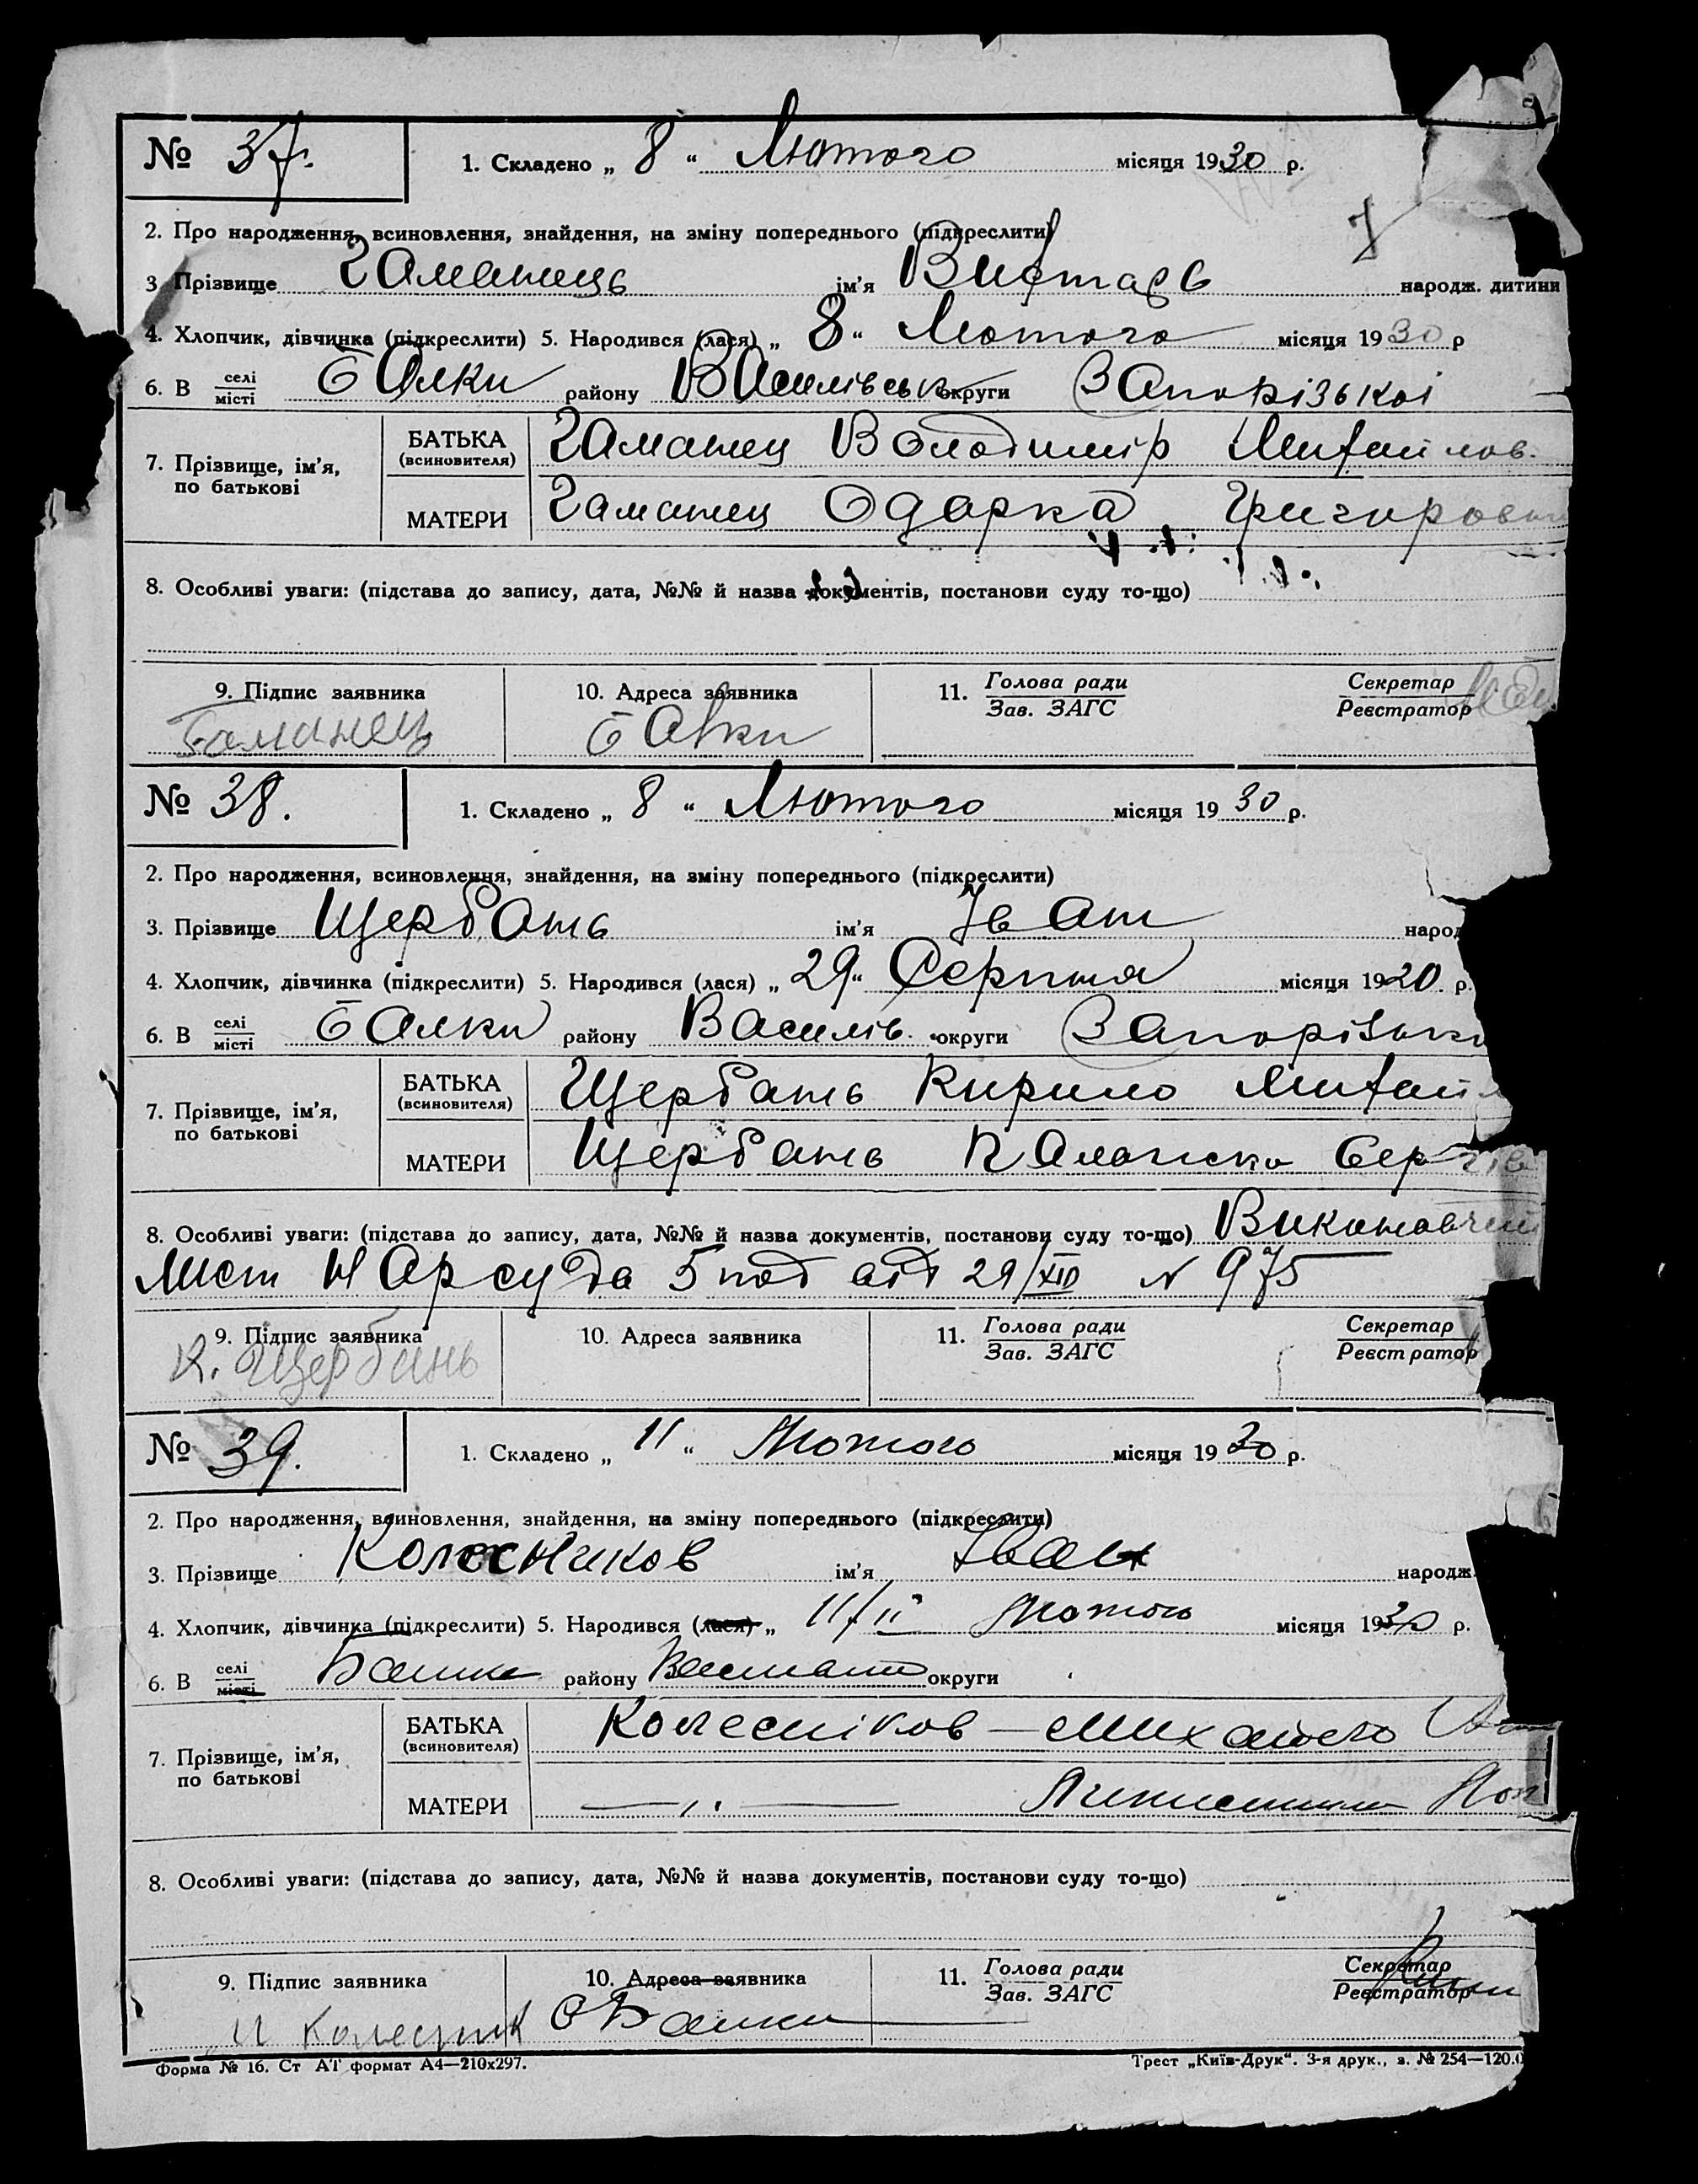 № 37. 1. Складено „ 8 “ Лютого місяця 1930 р.
2. Про народження, всиновлення, знайдення, на зміну попереднього (підкреслити)
3 Прізвище Гаманець ім'я народж. дитини
4. Хлопчик, дівчинка (підкреслити) 5. Народився (лася) „ 8 “ Лютого місяця 1930 р
6. В селі місті Балки району Василівськ округи Запорізької
7. Прізвище, ім'я, по батькові БАТЬКА (всиновителя) Гаманец Володимір Михайлов.
МАТЕРИ Гаманец Одарка
8. Особливі уваги: (підстава до запису, дата, №№ й назва документів, постанови суду то-що)
9. Підпис заявника 10. Адреса заявника 11. Голова ради Зав. ЗАГС Секретар Реєстратор
Гаманець Балки
№ 38. 1. Складено „ 8 “ Лютого місяця 1930 р.
2. Про народження, всиновлення, знайдення, на зміну попереднього (підкреслити)
3. Прізвище Щербань ім'я Іван народ
4. Хлопчик, дівчинка (підкреслити) 5. Народився (лася) „ 29 “ Серпня місяця 1920 р.
6. В селі місті Балки району Василів. округи Запорізьк
7. Прізвище, ім'я, по батькові БАТЬКА (всиновителя) Щербань Кирило Михайл
МАТЕРИ Щербань Сергіїв
8. Особливі уваги: (підстава до запису, дата, №№ й назва документів, постанови суду то-що) Виконавчий
Лист Нарсуда 5 від 29/XII № 975
9. Підпис заявника 10. Адреса заявника 11. Голова ради Зав. ЗАГС Секретар Реєстратор
К. Щербинь
№ 39. 1. Складено „ 11 “ Лютого місяця 1930 р.
2. Про народження, всиновлення, знайдення, на зміну попереднього (підкреслити)
3. Прізвище Колесников ім'я Іван народж.
4. Хлопчик, дівчинка (підкреслити) 5. Народився (лася) „ 11/II Лютого місяця 1930 р.
6. В селі місті Балки району округи
7. Прізвище, ім'я, по батькові БАТЬКА (всиновителя) Колесніков —
МАТЕРИ — „ —
8. Особливі уваги: (підстава до запису, дата, №№ й назва документів, постанови суду то-що)
9. Підпис заявника 10. Адреса заявника 11. Голова ради Зав. ЗАГС Секретар Реєстратор
Колесник С Балки
Форма № 16. Ст АТ формат А4—210х297. Трест „Київ-Друк“. 3-я друк., з. № 254—120.0